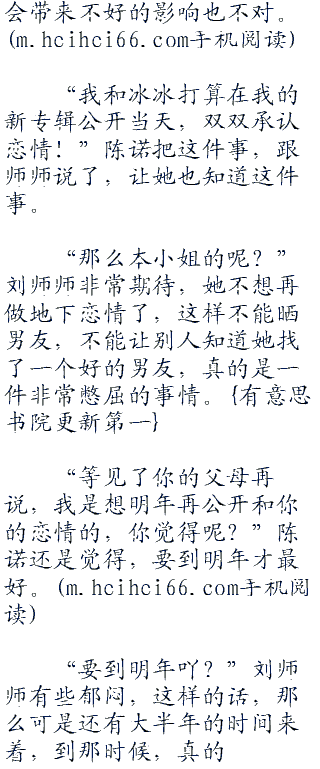 会带来不好的影响也不对。
(m.hcihci66.com手机阅读)
“我和冰冰打算在我的
新专辑公开当天，双双承认
恋情！”陈诺把这件事，跟
师师说了，让她也知道这件
事。
“那么本小姐的呢？”
刘师师非常期待，她不想再
做地下恋情了，这样不能晒
男友，不能让别人知道她找
了一个好的男友，真的是一
件非常憋屈的事情。{有意思
书院更新第一}
“等见了你的父母再
说，我是想明年再公开和你
的恋情的，你觉得呢？”陈
诺还是觉得，要到明年才最
好。(m.hcihci66.com手机阅
读)
“要到明年吖？”刘师
师有些郁闷，这样的话，那
么可是还有大半年的时间来
着，到那时候，真的